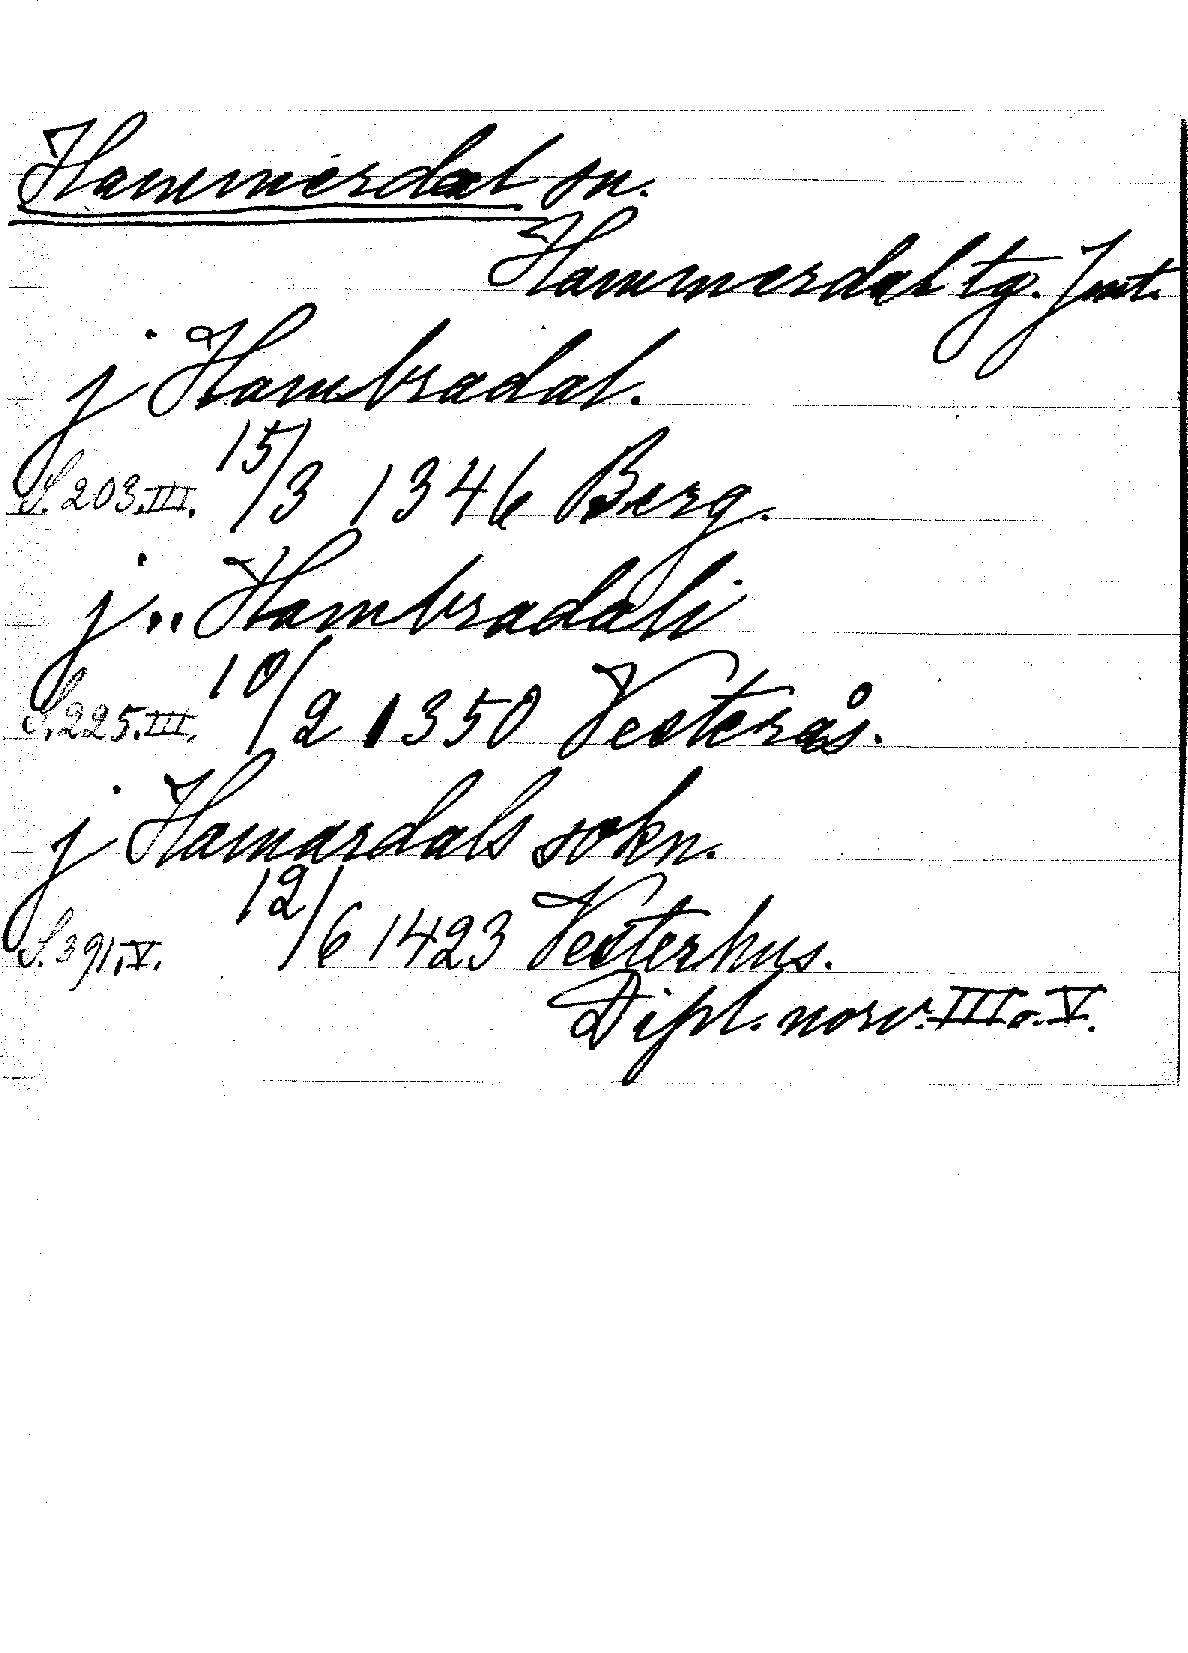 Hammerdal sn.
Hammerdal tg. Jmt.
j Hambradal.
S. 203. III. 15/3 1346 Berg.
j " Hambradali
S. 225. III. 10/2 1350 Vesterås.
j Hamardals sokn.
S. 391. V. 12/6 1423 Vesterhus.
Dipl. norv. III o. V.